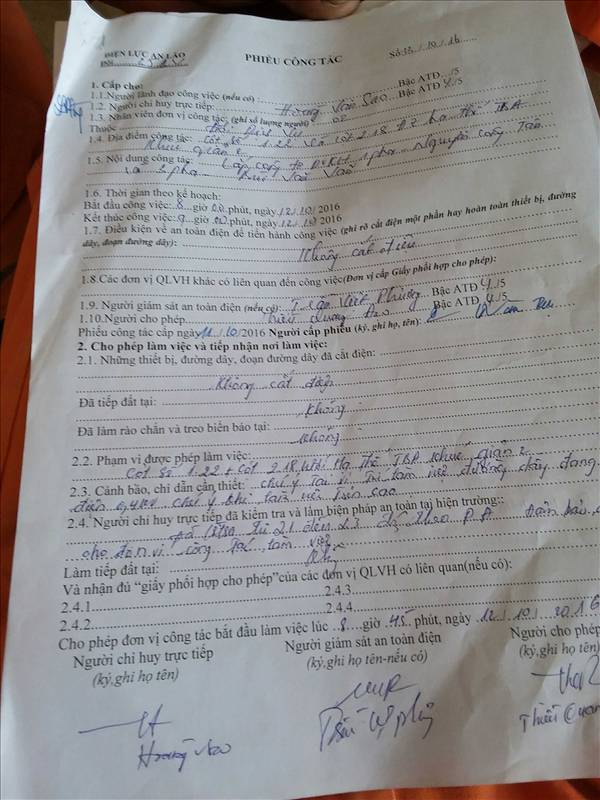 ĐIỆN LỰC AN LÃO
PHIẾU CÔNG TÁC
Số: 12/10/16
1. Cấp cho:
1.1.Người lãnh đạo công việc (nếu có) Bậc ATĐ.../5
1.2. Người chỉ huy trực tiếp: Hoàng Văn Sao Bậc ATĐ 4/5
1.3. Nhân viên đơn vị công tác: (ghi số lượng người) 02
Thuộc
1.4. Địa điểm công tác: Cột số 1.22 và cột 2.18 hạ thế TBA
Khúc giản 2
1.5. Nội dung công tác: Lắp công tơ 1pha Nguyễn Công Tấn
và 3 pha Văn
1.6. Thời gian theo kế hoạch:
Bắt đầu công việc: 8 giờ phút, ngày 12/10/ 2016
Kết thúc công việc: 9 giờ phút, ngày 12/10/ 2016
1.7. Điều kiện về an toàn điện để tiến hành công việc (ghi rõ cắt điện một phần hay hoàn toàn thiết bị, đường
dây, đoạn đường dây): Không cắt điện
1.8.Các đơn vị QLVH khác có liên quan đến công việc(Đơn vị cấp Giấy phối hợp cho phép):
1.9. Người giám sát an toàn điện (nếu có): Trần Việt Phương Bậc ATĐ 4/5
1.10.Người cho phép Bậc ATĐ 4/5
Phiếu công tác cấp ngày 11/10/2016 Người cấp phiếu (ký, ghi họ, tên):
2. Cho phép làm việc và tiếp nhận nơi làm việc:
2.1. Những thiết bị, đường dây, đoạn đường dây đã cắt điện:
Không cắt điện
Đã tiếp đất tại: Không
Đã làm rào chắn và treo biển báo tại: Không
2.2. Phạm vi được phép làm việc:
Cột số 1.22 + Cột 2.18 Hạ thế TBA Khúc giản 2
2.3. Cảnh báo, chỉ dẫn cần thiết: chú ý tại vị trí làm việc đường dây đang
điện 0,4KV chú ý khi làm việc trên cao
2.4. Người chỉ huy trực tiếp đã kiểm tra và làm biện pháp an toàn tại hiện trường::
từ 2.1 đến 2.3 đảm bảo
cho đơn vị công tác làm việc
Làm tiếp đất tại:
Và nhận đủ “giấy phối hợp cho phép”của các đơn vị QLVH có liên quan(nếu có):
2.4.1 2.4.3
2.4.2 2.4.4
Cho phép đơn vị công tác bắt đầu làm việc lúc 8 giờ 45 phút, ngày 12/10/2016
Người chỉ huy trực tiếp Người giám sát an toàn điện Người cho phép
(ký,ghi họ tên) (ký,ghi họ tên-nếu có) (ký,ghi họ tên